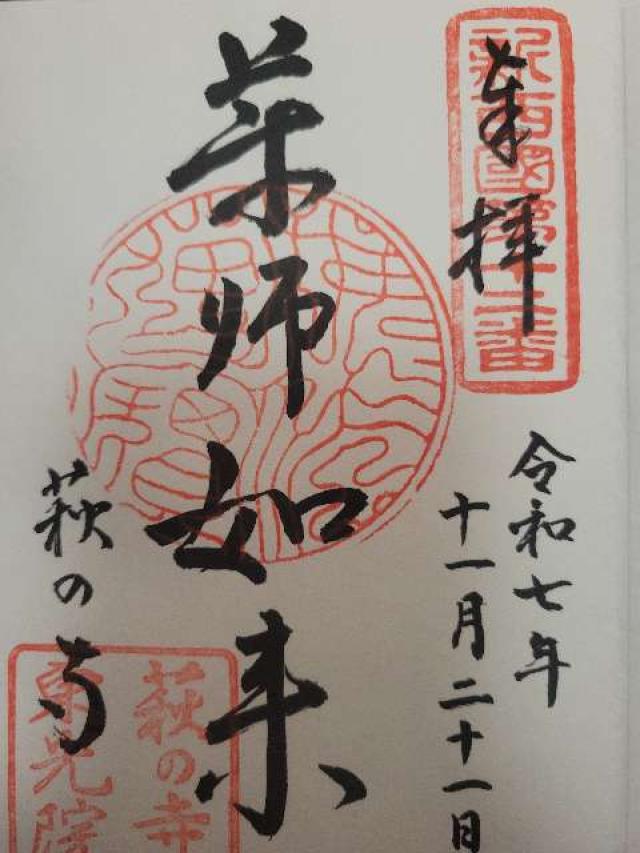 奉拝
新西國第十二番
令和七年
十一月二十一日
薬師如来
萩の寺
萩の寺
東光院